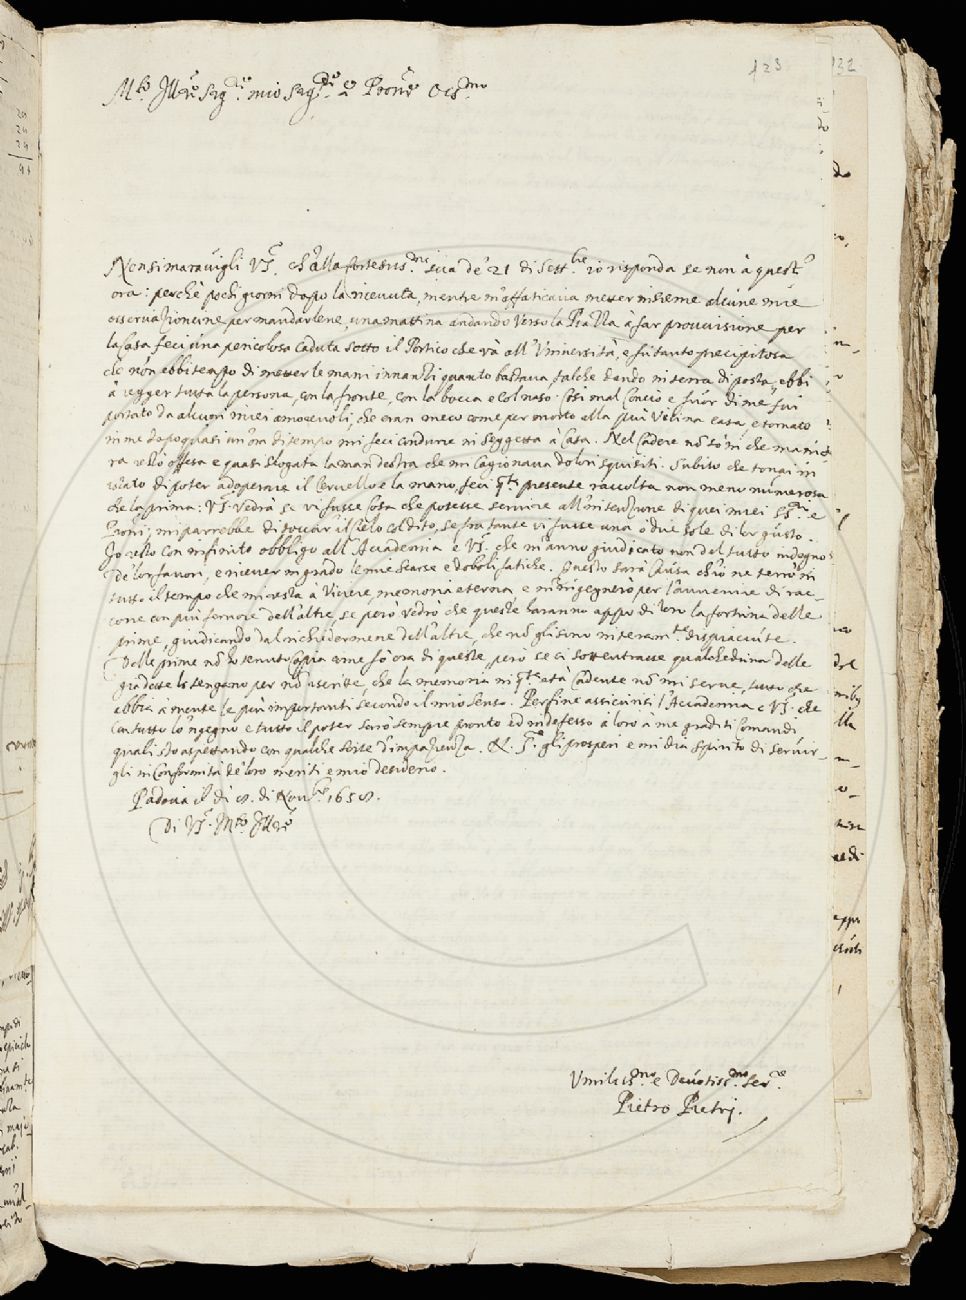 123
132
M.to Ill.re Sig.re mio Sig.re e Prone Oss.mo
Non si maravigli V.S. ch'alla cortesis.ma sua de' 21 di Sett.bre io risponda se non à quest'
ora: perchè pochi giorni dopo la ricevuta, mentre m'affaticava metter insieme alcune mie
osservazioncine per mandarlene, una mattina andando verso la Piazza à far provvisione per
la Casa feci una pericolosa caduta sotto il Portico che và all'Università, e fù tanto precipitosa
che non ebbi tempo di metter le mani innanzi quanto bastava, talche dando in terra di posta, ebbi
à regger tutta la persona, con la fronte, con la bocca e col naso. Così mal concio e fuor di me fui
portato da alcuni miei amorevoli, che eran meco come per morto alla più vicina casa, e tornato
in me dopo quasi un'ora di tempo mi feci condurre in seggetta à Casa. Nel cadere nō sò in che manie-
ra restò offesa e quasi slogata la man destra che mi cagionava dolori squisiti. Subito che tornai in
istato di poter adoperare il Cervello e la mano, feci q.ta presente raccolta non meno numerosa
de la prima: V.S. vedrà se vi fusse cosa che potesse servire all'intenzione di quei miei SS.ri e
Proni; mi parrebbe di toccar il Cielo col dito, se fra tante vi fusse una ò due sole di lor gusto.
Io resto con infinito obbligo all'Accademia e V.S. che m'anno giudicato non del tutto indegno
de' lor favori, e ricever in grado le mie scarse e deboli fatiche. Questo sarà causa ch'io ne terrò in
tutto il tempo che mi resta à vivere, memoria eterna, e m'ingegnerò per l'avvenire di rac-
corre con più fervore dell'altre, se però vedrò che queste haranno appo di loro la fortuna delle
prime, giudicando dal richiedermene dell'altre, che nō gli sieno interam.te dispiaciute.
Delle prime nō ho tenuto Copia come fò ora di queste, però se ci sottentrasse qualcheduna delle
giadette le tengano per nō iscritte, che la memoria in q.ta età cadente nō mi serve, tutto che
abbia a mente le più importanti secondo il mio senso. Per fine assicurisi l'Accademia e V.S. che
con tutto lo 'ngegno e tutto il poter sarò sempre pronto ed indefesso à loro à me graditi Comandi
quali stò aspettando con qualche sorte d'impazienza. N. S.re gli prosperi e mi dia spirito di servir-
gli in conformità de' loro meriti e mio desiderio.
Padova il dì 8. di Nov.re 1658.
Di V.S. M.to Ill.re
Umiliss.mo e Devotiss.mo Ser.re
Pietro Pietri.